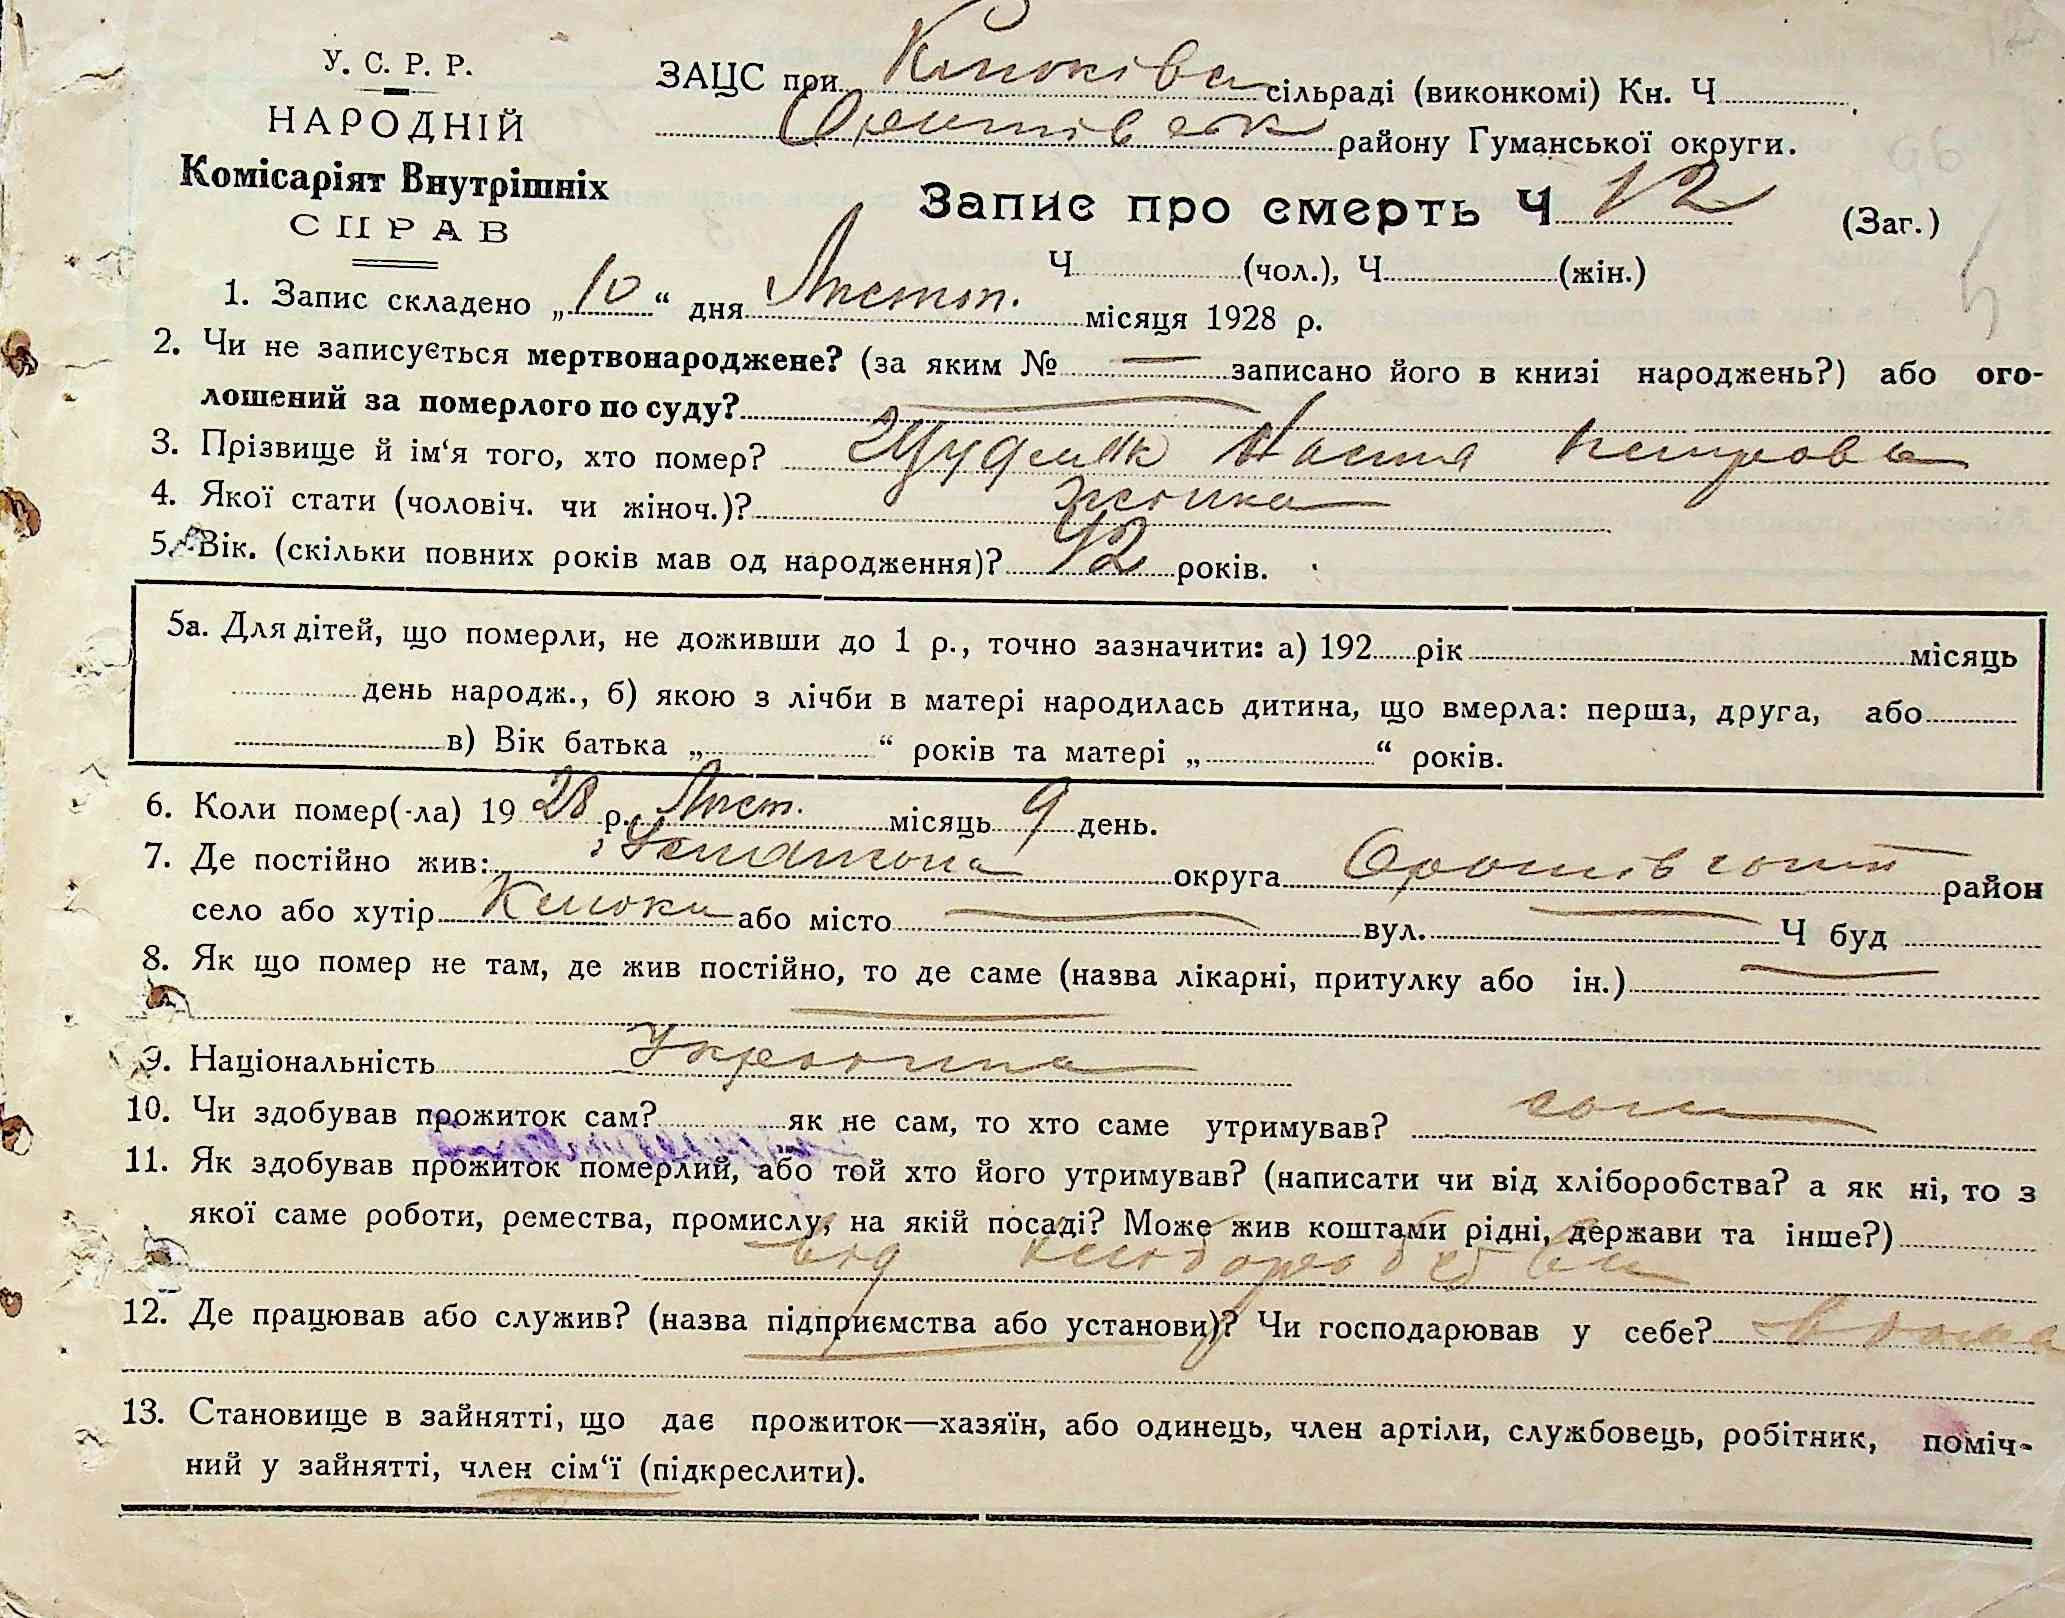 У. С. Р. Р.
НАРОДНІЙ
Комісаріят Внутрішніх
СПРАВ
ЗАЦС при сільраді (виконкомі) Кн. Ч
району Гуманської округи.
Запис про смерть Ч 12 (Заг.)
Ч (чол.), Ч (жін.)
1. Запис складено „10“ дня Листоп. місяця 1928 р.
2. Чи не записується мертвонароджене? (за яким № — записано його в книзі народжень?) або ого-
лошений за померлого по суду? —
3. Прізвище й ім‘я того, хто помер? Настя Петровна
4. Якої статі (чоловіч. чи жіноч.)? жінка
5. Вік. (скільки повних років мав од народження)? 42 років.
5а. Для дітей, що померли, не доживши до 1 р., точно зазначити: а) 192 рік місяць
день народж., б) якою з лічби в матері народилась дитина, що вмерла: перша, друга, або
в) Вік батька „ “ років та матері „ “ років.
6. Коли помер(-ла) 1928 р. Лист. місяць 9 день.
7. Де постійно жив: округа район
село або хутір Кищоки або місто — вул. — Ч буд —
8. Як що помер не там, де жив постійно, то де саме (назва лікарні, притулку або ін.)
—
9. Національність Українка
10. Чи здобував прожиток сам? як не сам, то хто саме утримував? сама
11. Як здобував прожиток померлий, або той хто його утримував? (написати чи від хліборобства? а як ні, то з
якої саме роботи, ремества, промислу, на якій посаді? Може жив коштами рідні, держави та інше?)
від хліборобства
12. Де працював або служив? (назва підприємства або установи)? Чи господарював у себе? вдома
13. Становище в зайнятті, що дає прожиток—хазяїн, або одинець, член артіли, службовець, робітник, поміч-
ний у зайнятті, член сім‘ї (підкреслити).